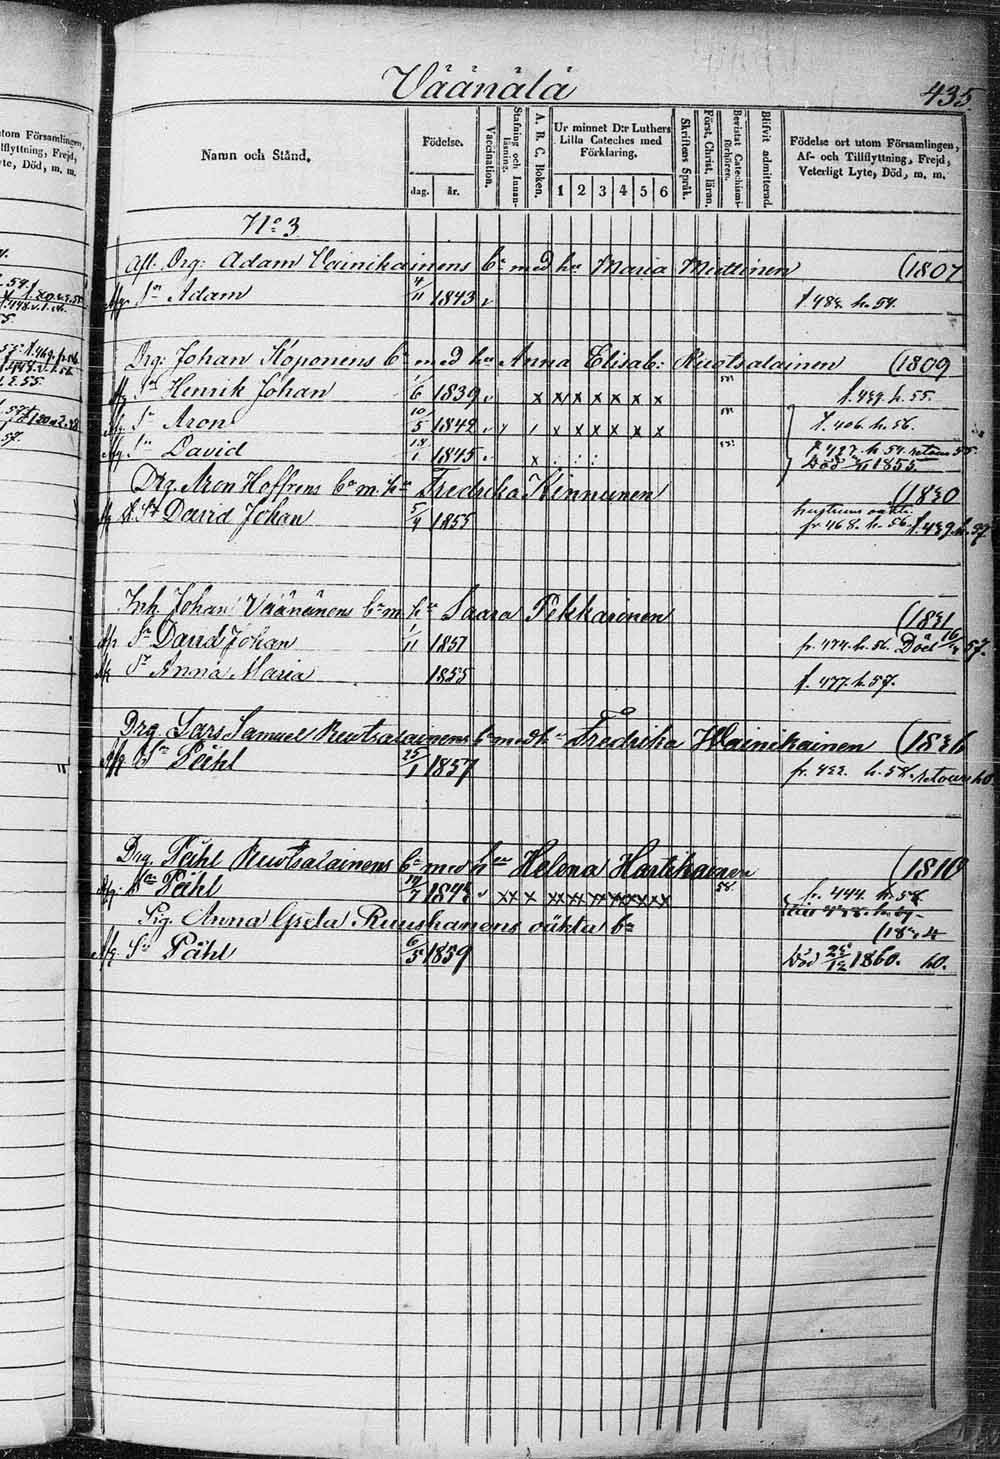 Väänälä
435
Namn och Stånd.
Födelse.
dag.
år.
Vaccination.
Stafning och Innanläsning.
A. B. C. Boken.
Ur minnet D:r Luthers Lilla Cateches med Förklaring.
1 2 3 4 5 6
Skriftens Språk.
Först. Christ. läran.
Bevistat Catechismiförhören.
Blifvit admitterad.
Födelse ort utom Församlingen,
Af- och Tillflyttning, Frejd,
Veterligt Lyte, Död, m. m.
No 3
Afl. Drg: Adam Vainikainens bn med hu Maria Miettinen (1807
Sn Adam 4/11 1843 f. 484. h. 54.
Drg: Johan Koponens bn med hu Anna Elisab: Ruotsalainen (1809
Sn Henrik Johan 1/6 1839 x x x x x x x f. 439. h. 55.
Sn Aron 10/5 1842 x x x x x x f. 406. h. 56.
Sn David 18/1 1845 x
Död 1855
Drg Aron Hoffrens bn m. hu Fredrika Kinnunen (1830
Sn David Johan 5/4 1855 fr 468. h. 56. f. 439. h. 57.
Inh. Johan Väänänens bn m hu Saara Pekkarinen (1831
Sn David Johan 1/11 1851 fr. 474. h. 56. Död 57.
Anna Maria 1855 f. 477. h. 57.
Drg Lars Samuel Ruotsalainens bn med hu Fredrika Wainikainen (1836
Sn Påhl 25/1 1857 fr. 432. h. 58. retour 60.
Drg. Påhl Ruotsalainens bn med hu Helena Hartikainen (1810
Sn Påhl 1843 fr. 444. h. 58.
Pig. Anna Greta Ruuskanens oäkta bn
Sn Påhl 6/5 1859 Död 1860. 60.